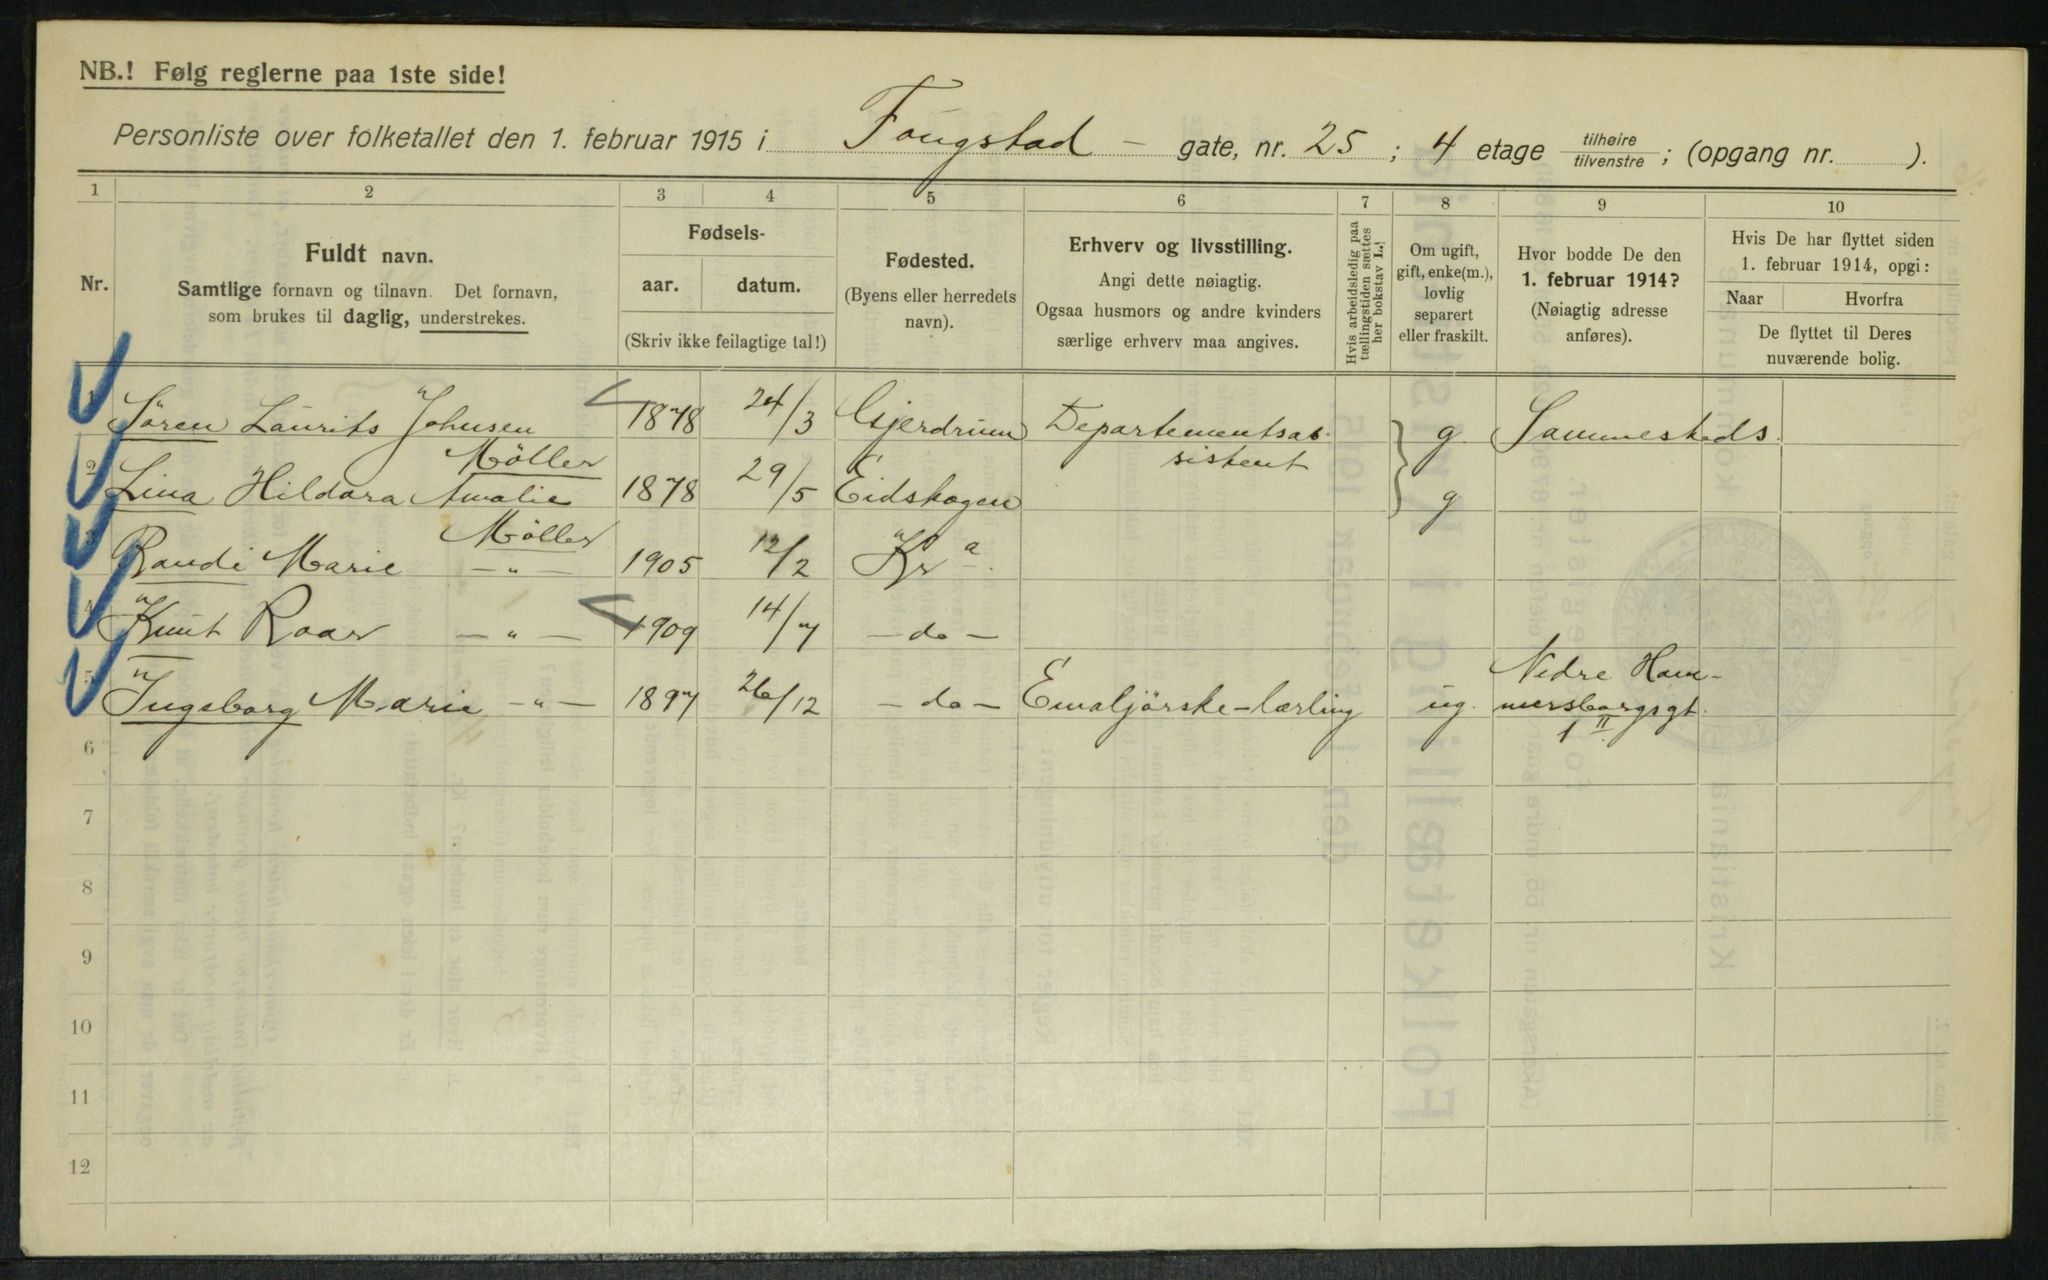 NB.! Følg reglerne paa 1ste side!
Personliste over folketallet den 1. februar 1915 i Fougstad - gate, nr. 25 ; 4 etage tilhøire tilvenstre ; (opgang nr. ).
1 2 3 4 5 6 7 8 9 10
Nr.
Fuldt navn.
Samtlige fornavn og tilnavn. Det fornavn,
som brukes til daglig, understrekes.
Fødsels-
aar. datum.
(Skriv ikke feilagtige tal!)
Fødested.
(Byens eller herredets
navn).
Erhverv og livsstilling.
Angi dette nøiagtig.
Ogsaa husmors og andre kvinders
særlige erhverv maa angives.
Hvis arbeidsledig paa
tællingstiden sættes
her bokstav L.!
Om ugift,
gift, enke(m.),
lovlig
separert
eller fraskilt.
Hvor bodde De den
1. februar 1914?
(Nøiagtig adresse
anføres).
Hvis De har flyttet siden
1. februar 1914, opgi:
Naar Hvorfra
De flyttet til Deres
nuværende bolig.
1 Sören Laurits Johnsen 1878 24/3 Gjerdrum Departementsas- g. Sammesteds.
Möller sistent
2 Lina Hildora Amalie 1878 29/5 Eidskogen g
Möller
3 Randi Marie — " — 1905 12/2 Kr a.
4 Knut Roar — " — 1909 14/7 — do —
Nedre Ham-
5 Ingeborg Marie — " — 1897 26/12 — do — Emaljörske-lærling ug. mersborgsgt.
1 II
6
7
8
9
10
11
12